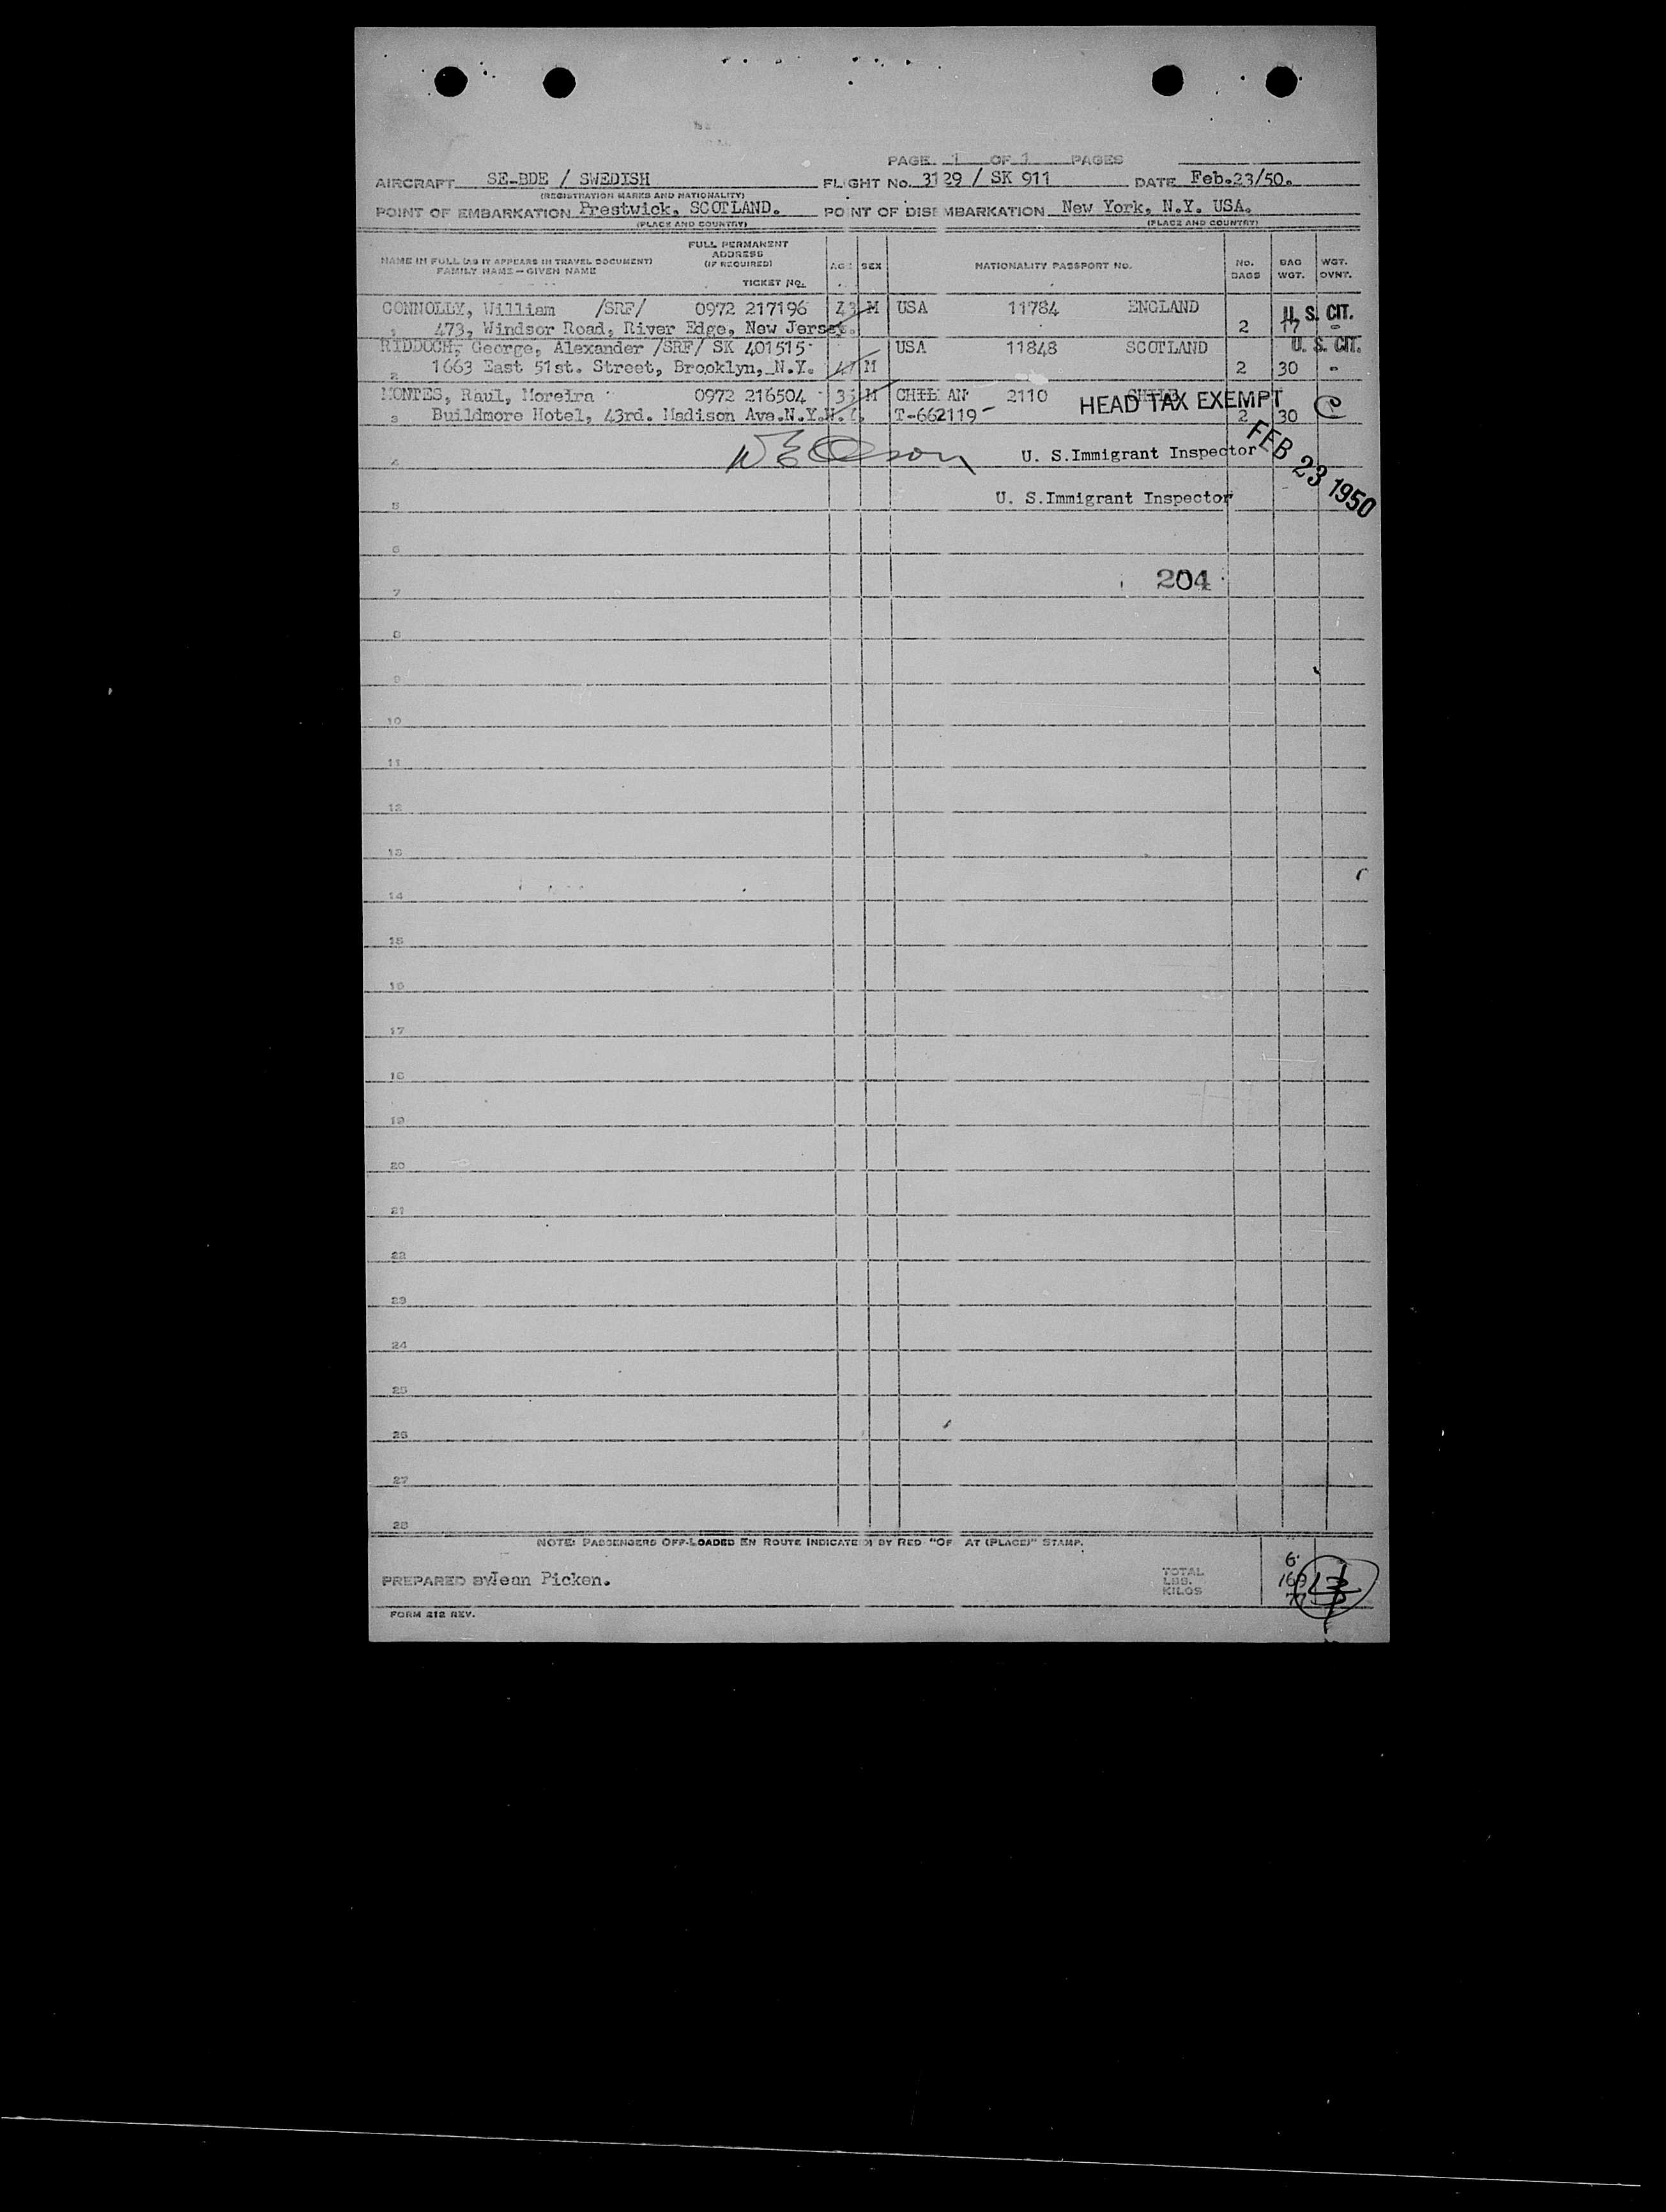 PAGE 1 OF 1 PAGES
AIRCRAFT SE-BDE / SWEDISH FLIGHT No. 3129 / SK 911 DATE Feb.23/50.
(REGISTRATION MARKS AND NATIONALITY)
POINT OF EMBARKATION Prestwick, SCOTLAND. POINT OF DISEMBARKATION New York, N.Y. USA.
(PLACE AND COUNTRY) (PLACE AND COUNTRY)
NAME IN FULL (AS IT APPEARS IN TRAVEL DOCUMENT) FAMILY NAME — GIVEN NAME FULL PERMANENT ADDRESS (IF REQUIRED) TICKET NO. AGE SEX NATIONALITY PASSPORT No. NO. BAGS BAG WGT. WGT. OVNT.
CONNOLLY, William /SRF/ 0972 217196 43 M USA 11784 ENGLAND U. S. CIT.
1 473, Windsor Road, River Edge, New Jersey. 2 17 -
RIDDOCH, George, Alexander /SRF/ SK 401515 USA 11848 SCOTLAND U. S. CIT.
2 1663 East 51st. Street, Brooklyn, N.Y. 47 M 2 30 -
MONTES, Raul, Moreira 0972 216504 35 M CHILEAN 2110 CHILE HEAD TAX EXEMPT
3 Buildmore Hotel, 43rd. Madison Ave.N.Y.N.Y. T-662119 2 30 C
FEB 23 1950
4 U. S.Immigrant Inspector
5 U. S.Immigrant Inspector
6
7 204
8
9
10
11
12
13
14
15
16
17
18
19
20
21
22
23
24
25
26
27
28
NOTE: PASSENGERS OFF-LOADED EN ROUTE INDICATED BY RED "OFF AT (PLACE)" STAMP.
PREPARED BY Jean Picken. TOTAL 6
LBS. 169
KILOS 77
FORM 212 REV.